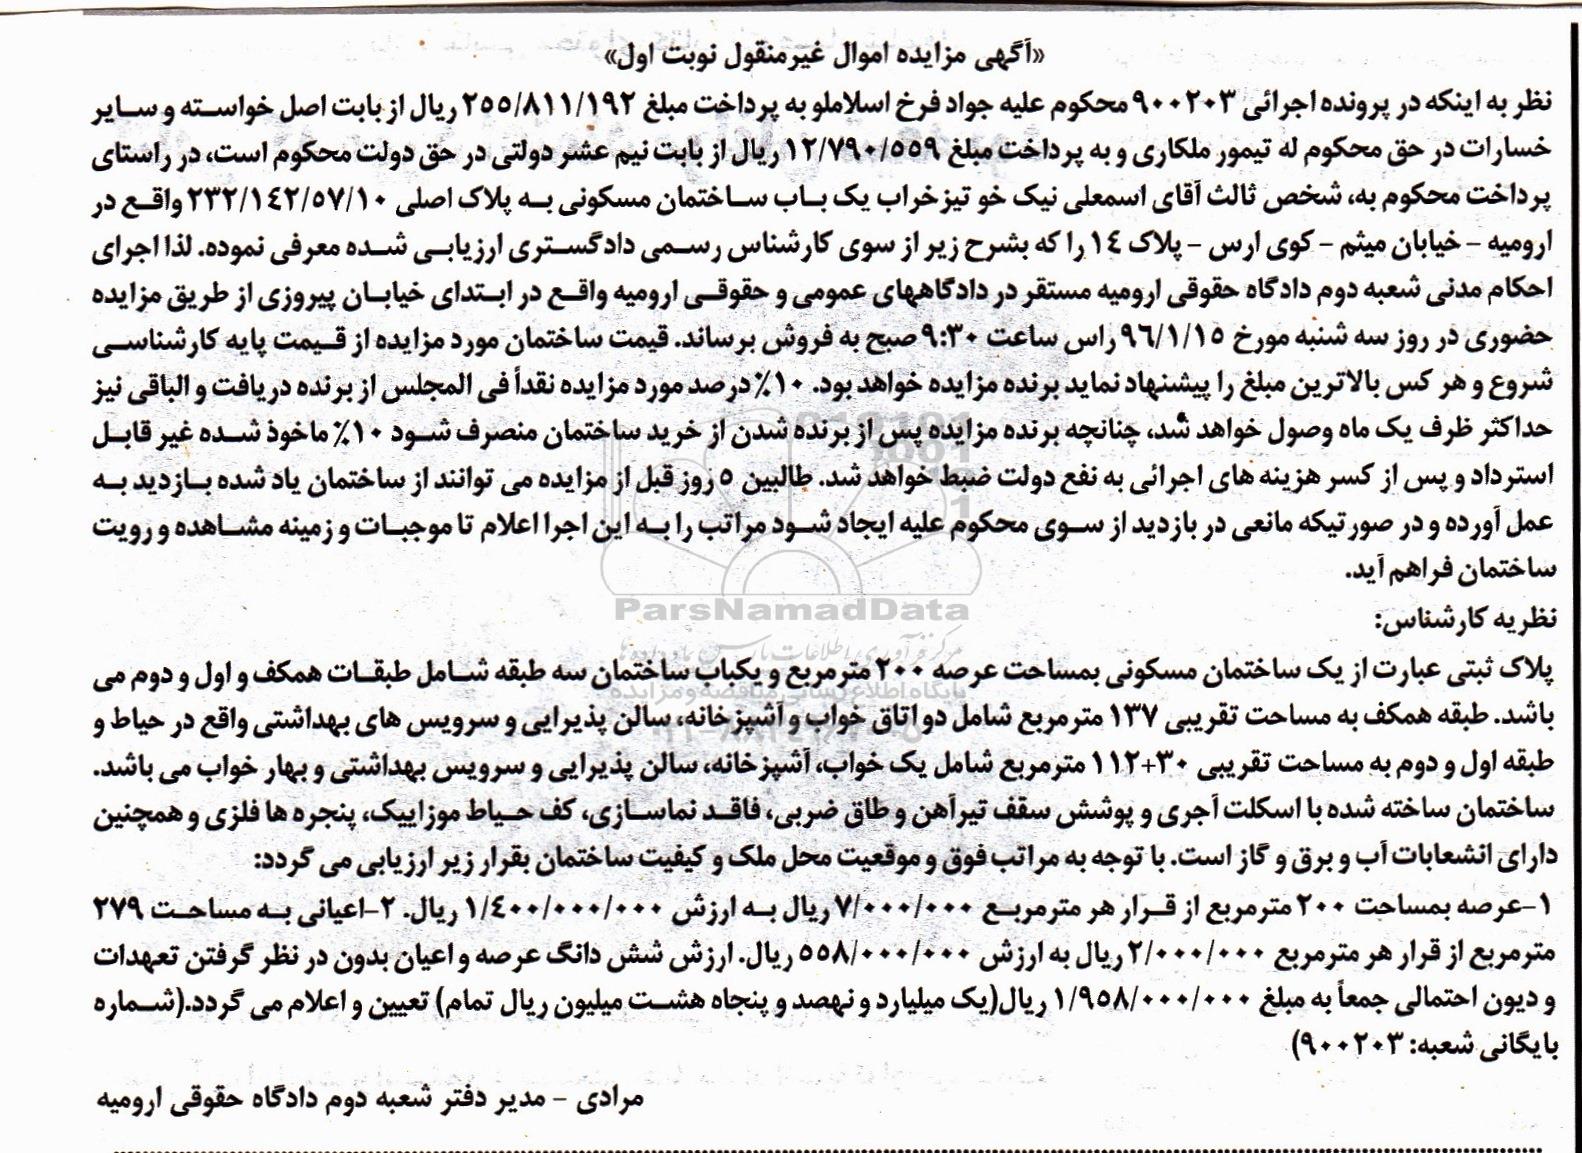 «آگهی مزایده اموال غیرمنقول نوبت اول»
نظر به اینکه در پرونده اجرائی ۹۰۰۲۰۳ محکوم علیه جواد فرخ اسلاملو به پرداخت مبلغ ۲۵۵/۸۱۱/۱۹۲ ریال از بابت اصل خواسته و سایر
خسارات در حق محکوم له تیمور ملکاری و به پرداخت مبلغ ۱۲/۷۹۰/۵۵۹ ریال از بابت نیم عشر دولتی در حق دولت محکوم است، در راستای
پرداخت محکوم به، شخص ثالث آقای اسمعلی نیک خو تیزخراب یک باب ساختمان مسکونی به پلاک اصلی ۲۳۲/۱٤۲/۵۷/۱۰ واقع در
ارومیه - خیابان میثم - کوی ارس - پلاک ۱٤ را که بشرح زیر از سوی کارشناس رسمی دادگستری ارزیابی شده معرفی نموده. لذا اجرای
احکام مدنی شعبه دوم دادگاه حقوقی ارومیه مستقر در دادگاههای عمومی و حقوقی ارومیه واقع در ابتدای خیابان پیروزی از طریق مزایده
حضوری در روز سه شنبه مورخ ۹٦/۱/۱۵ راس ساعت ۹:۳۰ صبح به فروش برساند. قیمت ساختمان مورد مزایده از قیمت پایه کارشناسی
شروع و هر کس بالاترین مبلغ را پیشنهاد نماید برنده مزایده خواهد بود. ۱۰٪ درصد مورد مزایده نقداً فی المجلس از برنده دریافت و الباقی نیز
حداکثر ظرف یک ماه وصول خواهد شد، چنانچه برنده مزایده پس از برنده شدن از خرید ساختمان منصرف شود ۱۰٪ ماخوذ شده غیر قابل
استرداد و پس از کسر هزینه های اجرائی به نفع دولت ضبط خواهد شد. طالبین ۵ روز قبل از مزایده می توانند از ساختمان یاد شده بازدید به
عمل آورده و در صورتیکه مانعی در بازدید از سوی محکوم علیه ایجاد شود مراتب را به این اجرا اعلام تا موجبات و زمینه مشاهده و رویت
ساختمان فراهم آید.
ParsNamadData
نظریه کارشناس:
پلاک ثبتی عبارت از یک ساختمان مسکونی بمساحت عرصه ۲۰۰ مترمربع و یکباب ساختمان سه طبقه شامل طبقات همکف و اول و دوم می
باشد. طبقه همکف به مساحت تقریبی ۱۳۷ مترمربع شامل دو اتاق خواب و آشپزخانه، سالن پذیرایی و سرویس های بهداشتی واقع در حیاط و
طبقه اول و دوم به مساحت تقریبی ۳۰+۱۱۲ مترمربع شامل یک خواب، آشپزخانه، سالن پذیرایی و سرویس بهداشتی و بهار خواب می باشد.
ساختمان ساخته شده با اسکلت آجری و پوشش سقف تیرآهن و طاق ضربی، فاقد نماسازی، کف حیاط موزاییک، پنجره ها فلزی و همچنین
دارای انشعابات آب و برق و گاز است. با توجه به مراتب فوق و موقعیت محل ملک و کیفیت ساختمان بقرار زیر ارزیابی می گردد:
۱-عرصه بمساحت ۲۰۰ مترمربع از قرار هر مترمربع ۷/۰۰۰/۰۰۰ ریال به ارزش ۱/٤۰۰/۰۰۰/۰۰۰ ریال. ۲-اعیانی به مساحت ۲۷۹
مترمربع از قرار هر مترمربع ۲/۰۰۰/۰۰۰ ریال به ارزش ۵۵۸/۰۰۰/۰۰۰ ریال. ارزش شش دانگ عرصه و اعیان بدون در نظر گرفتن تعهدات
و دیون احتمالی جمعاً به مبلغ ۱/۹۵۸/۰۰۰/۰۰۰ ریال(یک میلیارد و نهصد و پنجاه هشت میلیون ریال تمام) تعیین و اعلام می گردد.(شماره
بایگانی شعبه: ۹۰۰۲۰۳)
مرادی - مدیر دفتر شعبه دوم دادگاه حقوقی ارومیه